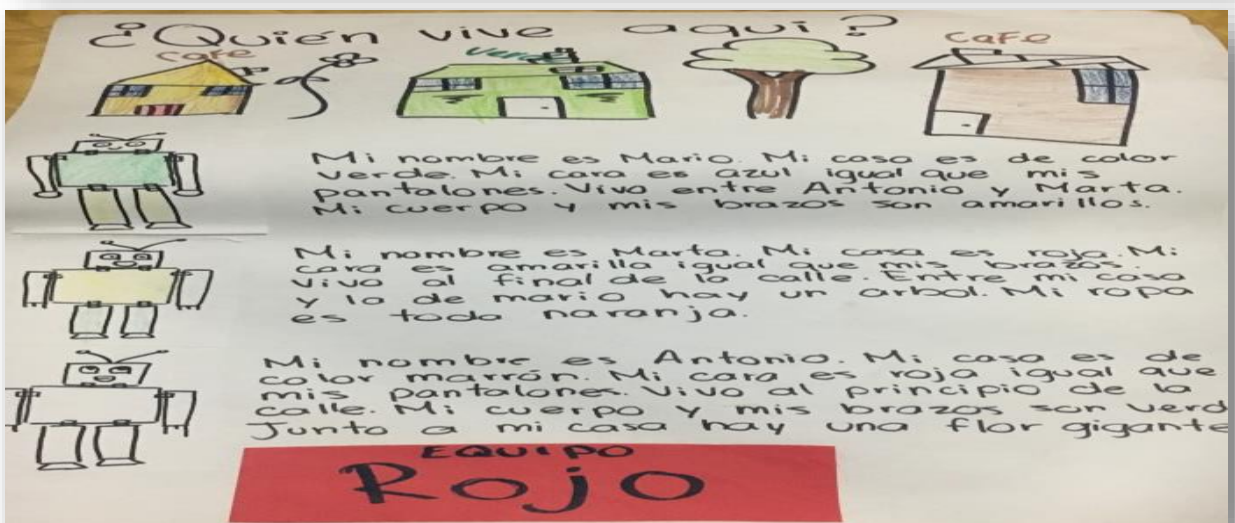 ¿Quién vive aquí?
Cafe
Verde
CaFe
Mi nombre es Mario. Mi casa es de color
verde. Mi cara es azul igual que mis
pantalones. Vivo entre Antonio y Marta.
Mi cuerpo y mis brazos son amarillos.
Mi nombre es Marta. Mi casa es roja. Mi
cara es amarilla igual que mis brazos.
Vivo al final de la calle. Entre mi casa
y la de mario hay un arbol. Mi ropa
es toda naranja.
Mi nombre es Antonio. Mi casa es de
color marrón. Mi cara es roja igual que
mis pantalones. Vivo al principio de la
calle. Mi cuerpo y mis brazos son verd
Junto a mi casa hay una flor gigante
EQUIPO
Rojo